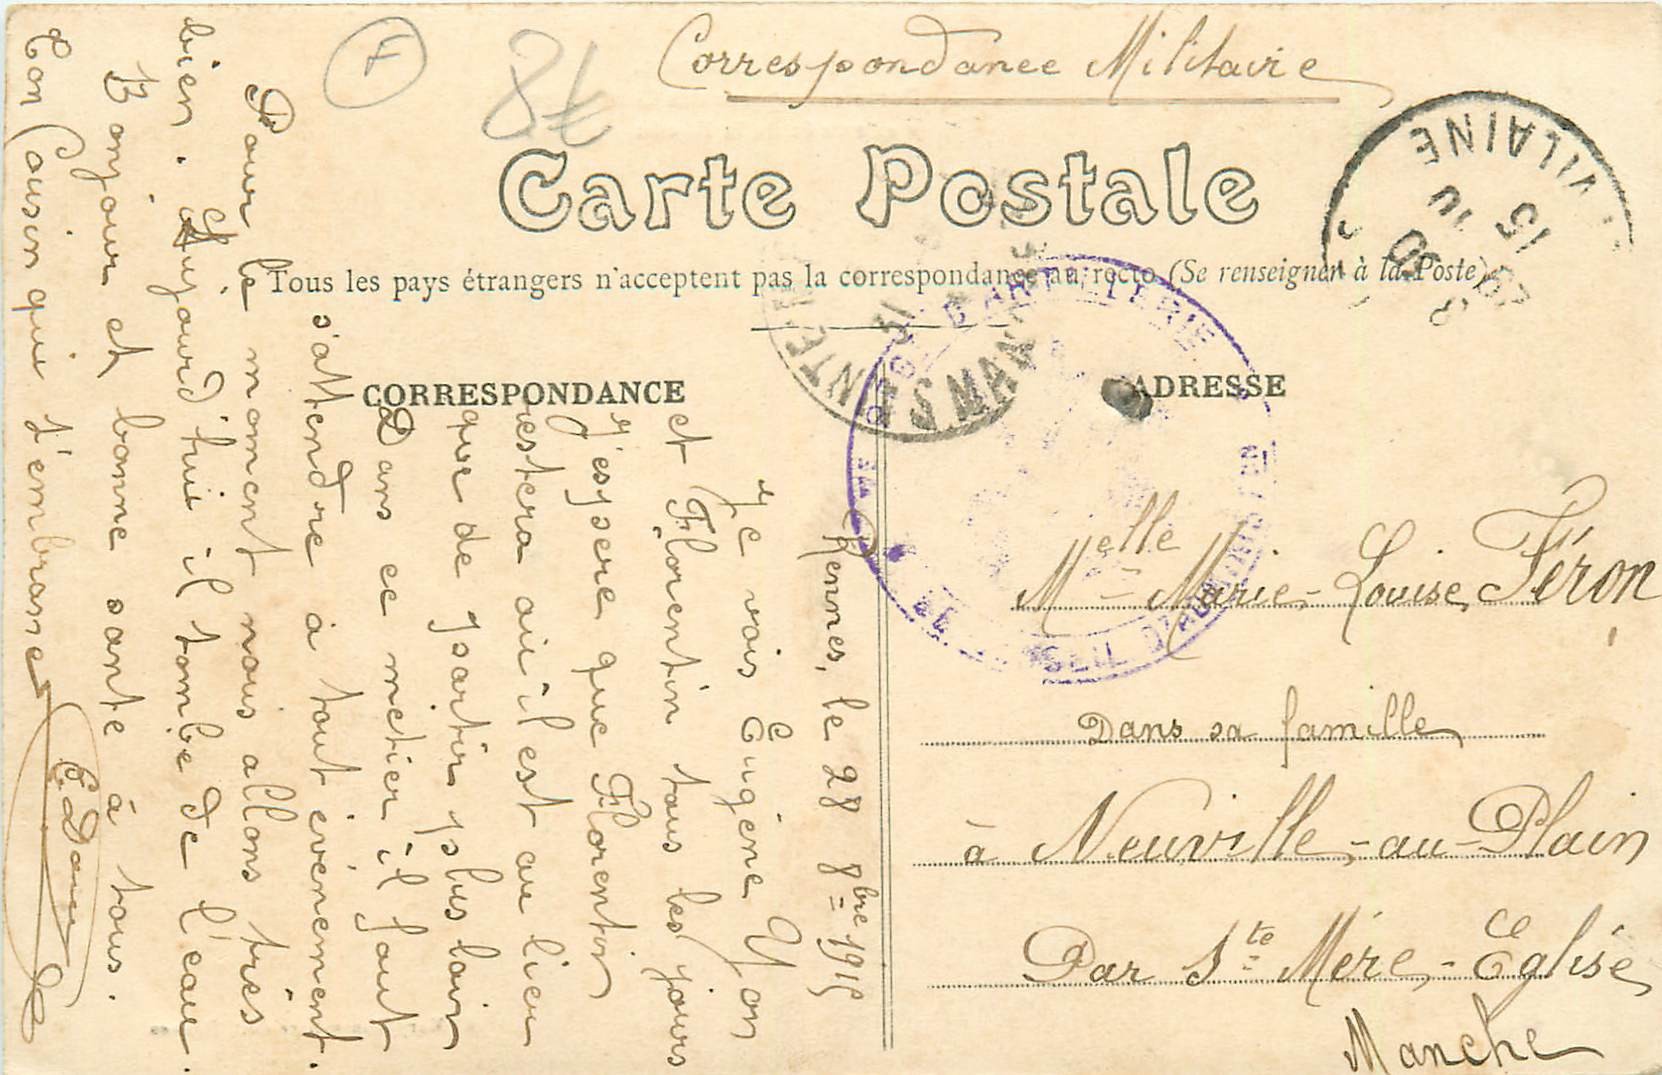 Correspondance Militaire
F
8€
Carte Postale
Tous les pays étrangers n'acceptent pas la correspondance au recto (Se renseigner à la Poste)
CORRESPONDANCE
ADRESSE
Rennes, le 28 8bre 1915
Je vois Eugène Yon
et Florentin tous les jours
j'espere que Florentin
restera où-il est au lieu
que de partir plus loin
Dans ce métier-il faut
s'attendre à tout évènement.
Pour le moment nous allons très
bien. Aujourd'hui-il tombe de l'eau.
Bonjour et bonne santé à tous.
Ton Cousin qui t'embrasse
Melle Marie-Louise Féron
Dans sa famille
à Neuville-au-Plain
Par Ste Mère-Eglise
Manche
VILAINE
15
D'ARTILLERIE
CONSEIL D'ADMINISTRATION